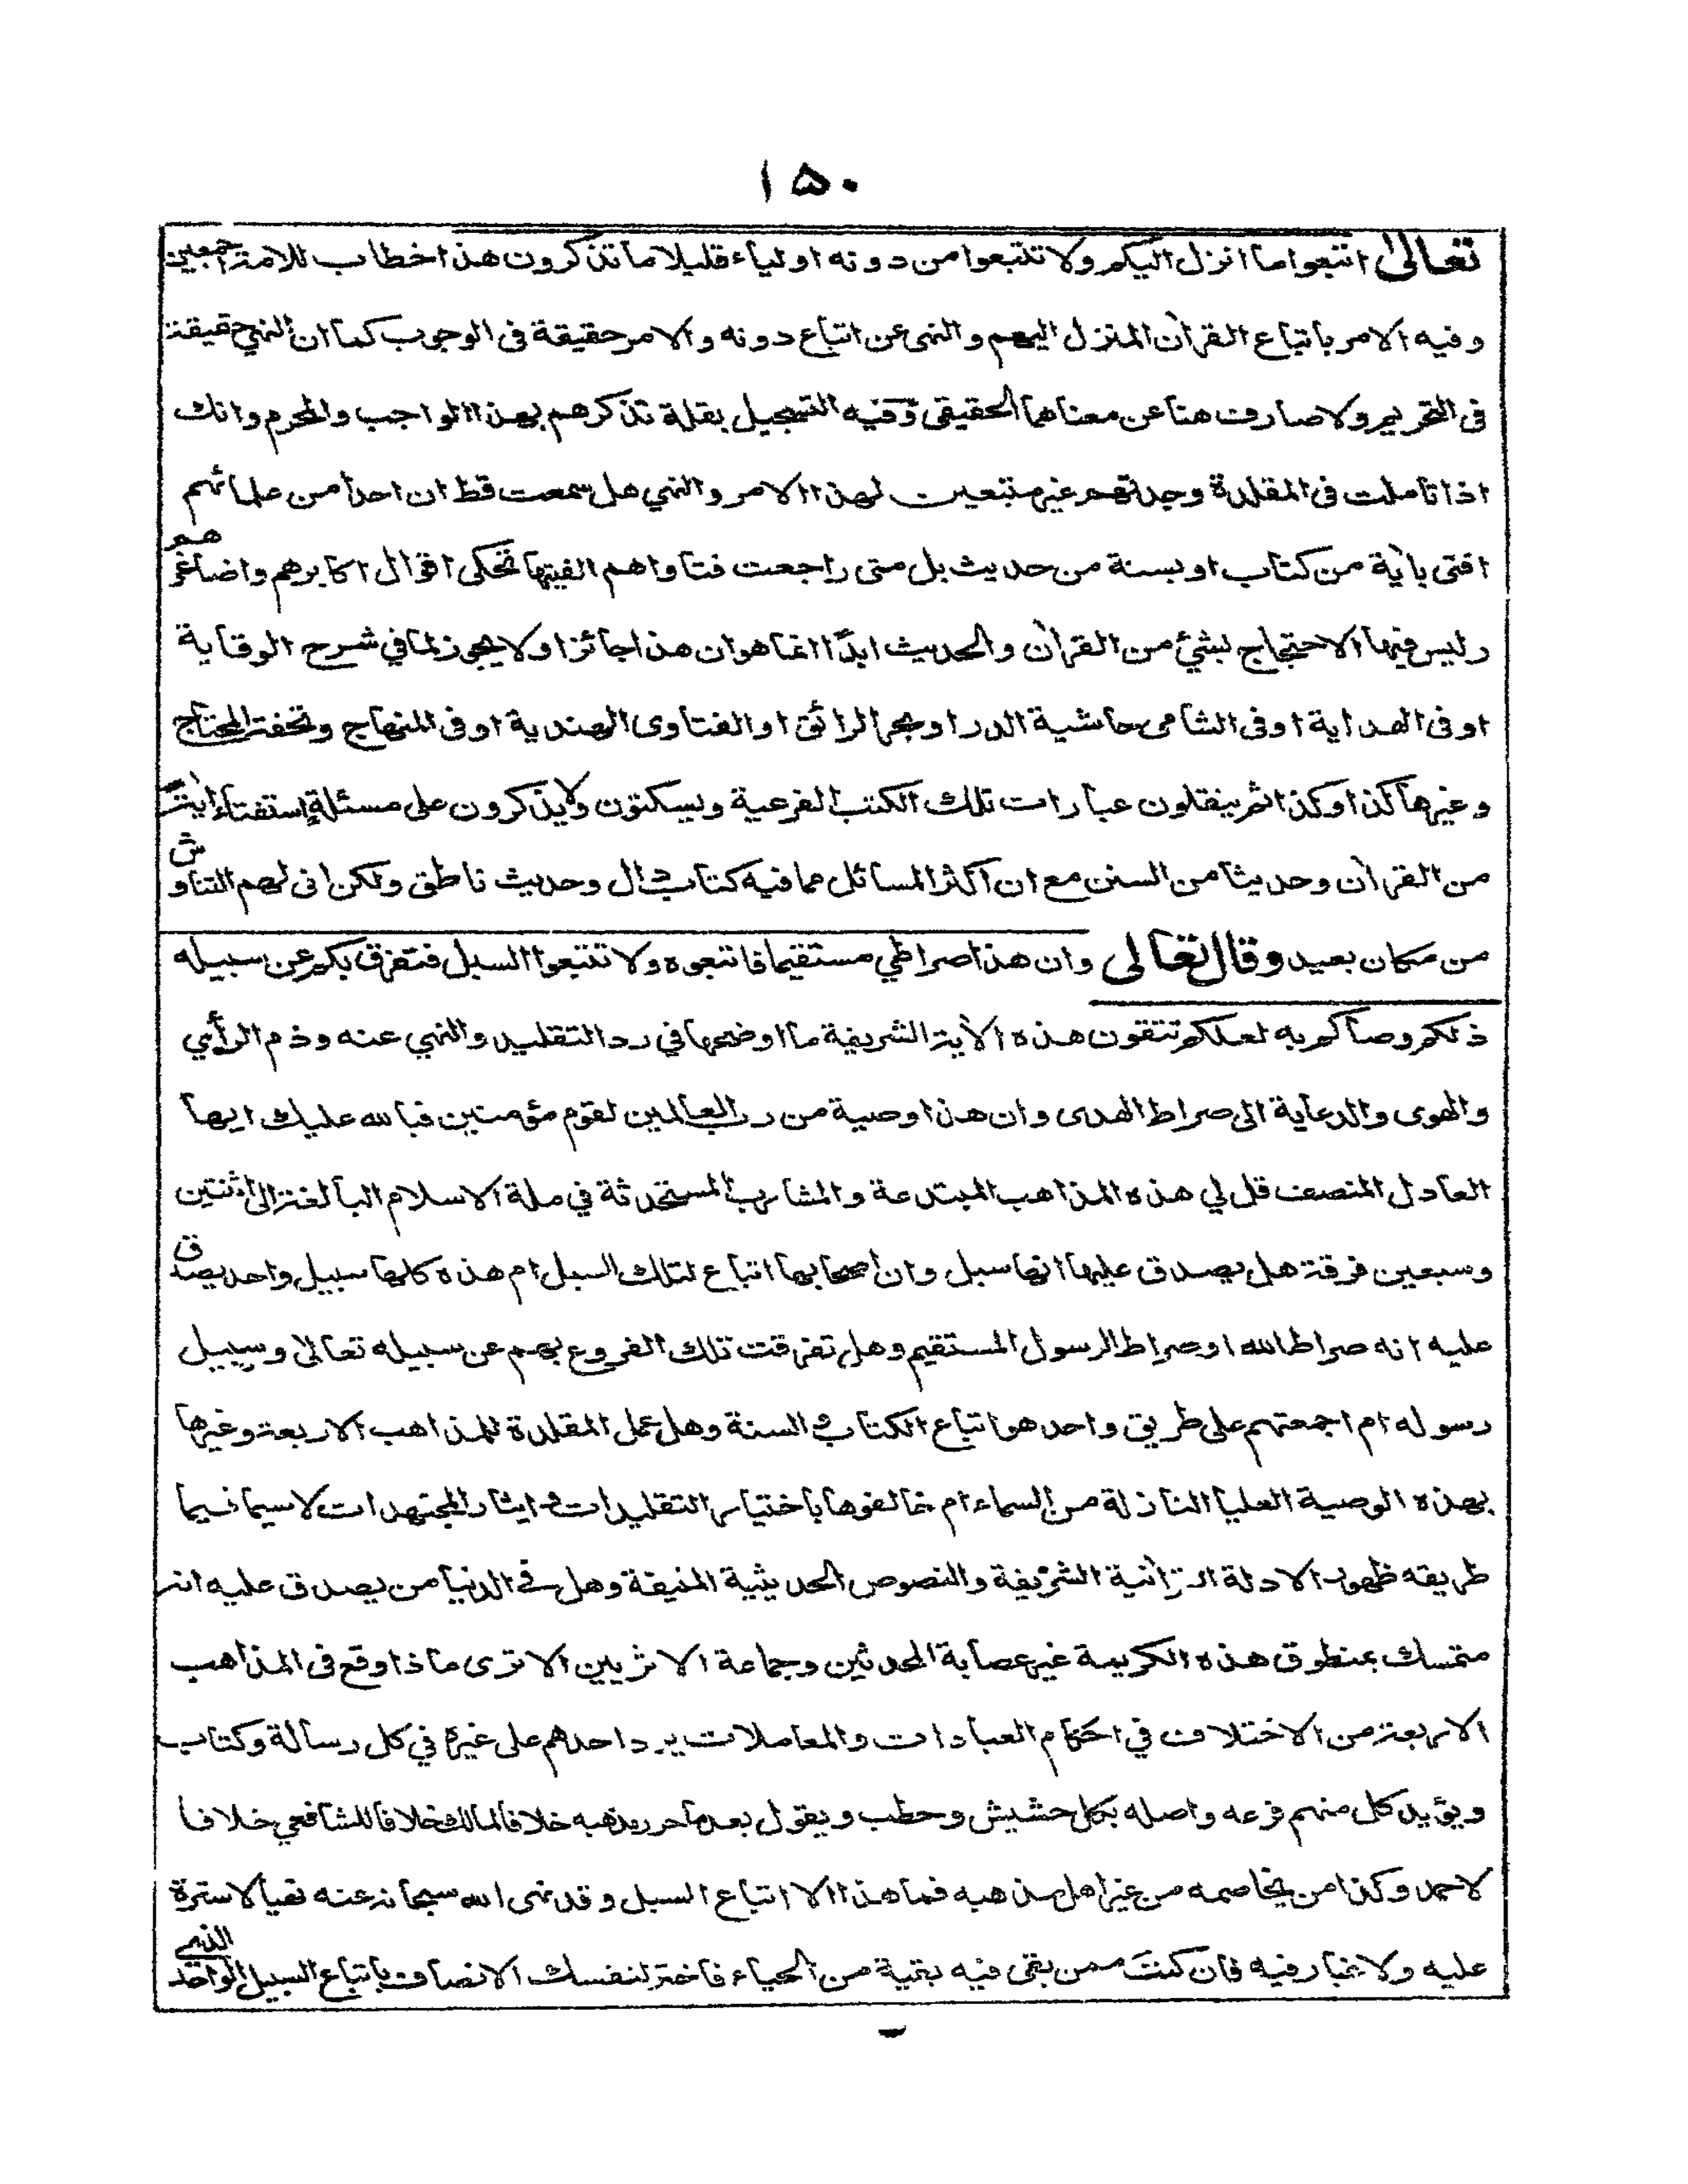 ١٥٠
تعالى اتبعوا ما انزل اليكم ولا تتبعوا من دونه اولياء قليلا ما تذكرون هذا خطاب للامة اجمعين
وفيه الامر باتباع القرآن المنزل اليهم والنهى عن اتباع دونه والامر حقيقة فى الوجوب كما ان النهي حقيقة
فى التحريم ولا صارف هنا عن معناهما الحقيقى وفيه التسجيل بقلة تذكرهم بهذا الواجب والمحرم وانك
اذا تاملت فى المقلدة وجدتهم غير متبعين لهذا الامر والنهي هل سمعت قط ان احدا من علمائهم
افتى بآية من كتاب او بسنة من حديث بل متى راجعت فتاواهم الفيتها تحكى اقوال اكابرهم واصاغرهم
وليس فيها الاحتجاج بشئ من القرآن والحديث ابدًا انما هو ان هذا جائز او لا يجوز لما في شرح الوقاية
او فى الهداية او فى الشامى حاشية الدر او بحر الرائق او الفتاوى الهندية او فى المنهاج وتحفة المحتاج
وغيرها كذا وكذا ثم ينقلون عبارات تلك الكتب الفرعية ويسكتون ولا يذكرون على مسئلة استفتاء آية
من القرآن وحديثا من السنن مع ان اكثر المسائل مما فيه كتاب دال وحديث ناطق ولكن انى لهم التناوش
من مكان بعيد وقال تعالى وان هذا صراطي مستقيما فاتبعوه ولا تتبعوا السبل فتفرق بكم عن سبيله
ذلكم وصاكم به لعلكم تتقون هذه الآية الشريفة ما اوضحها في رد التقليد والنهي عنه وذم الرأي
والهوى والدعاية الى صراط الهدى وان هذا وصية من رب العالمين لقوم مؤمنين فبالله عليك ايها
العادل المنصف قل لي هذه المذاهب المبتدعة والمشارب المستحدثة في ملة الاسلام البالغة الى اثنتين
وسبعين فرقة هل يصدق عليها انها سبل وان اصحابها اتباع لتلك السبل ام هذه كلها سبيل واحد يصدق
عليه انه صراط الله او صراط الرسول المستقيم وهل تفرقت تلك الفروع بهم عن سبيله تعالى وسبيل
رسوله ام اجمعتهم على طريق واحد هو اتباع الكتاب والسنة وهل عمل المقلدة للمذاهب الاربعة وغيرها
بهذه الوصية العليا النازلة من السماء ام خالفوها باختيار التقليدات وايثار المجتهدات لاسيما فيما
طريقه ظهور الادلة القرآنية الشريفة والنصوص الحديثية المنيفة وهل في الدنيا من يصدق عليه انه
متمسك بمنطوق هذه الكريمة غير عصابة المحدثين وجماعة الاثريين الا ترى ماذا وقع فى المذاهب
الاربعة من الاختلاف في احكام العبادات والمعاملات يرد احدهم على غيره في كل رسالة وكتاب
ويؤيد كل منهم فرعه واصله بكل حشيش وحطب ويقول بعد ما حرر مذهبه خلافا لمالك خلافا للشافعي خلافا
لاحمد وكذا من يخاصمه من غير اهل مذهبه فما هذا الا اتباع السبل وقد نهى الله سبحانه عنه نهيا لا سترة
عليه ولا غبار فيه فان كنت ممن بقى فيه بقية من الحياء فاختر لنفسك الانصاف باتباع السبيل الواحد الذي